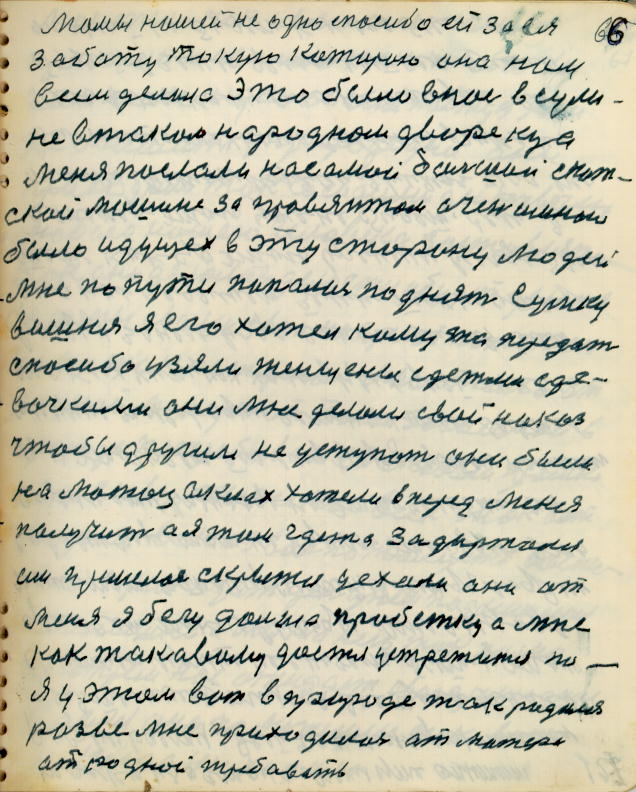 Мамы нашей не одно спосибо ей за ея 66
Заботу такую каторую она нам
всем делала Это было вное в сули-
не втаком народном дворе куда
меня послали насамой большой скот-
ской машине за провянтом очен
было идущех в Эту сторону людей
мне по пути попался поднят Сумку
я его хотел кому та передат
спосибо узяли женщены сдетми сде-
вочками они мне делали свой наказ
чтобы другим не уступат они были
на матоцыклах хотели вперед меня
получит а я там где та Задыржался
им пришлос скрытса уехали они от
меня я бегу дальша пробежку а мне
как такавому устретится по —
я у Этом вот в природе так родился
розве мне приходилос от матери
от родной требавать